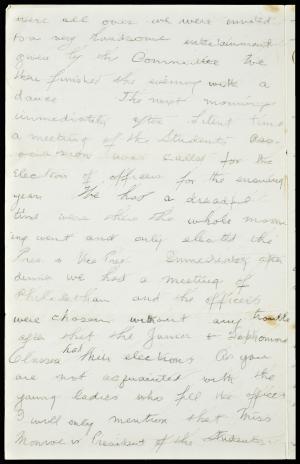 were all over we were invited
to a very handsome entertainment
given by the Committee We
then finished the evening with a
dance. The next morning
immediately after silent time
a meeting of the Students Asso-
ciation was called for the
Election of officers for the ensuing
year. We had a dreadful
time were there the whole morn
ing went and only elected the
Pres. & Vice Pres. Immediately after
dinner we had a meeting of
Philalethean and the officers
were chosen without any trouble
after that the Junior & Sophomore
Classes had their elections As you
are not acquainted with the
young ladies who fill the offices
I will only mention that Miss
Monroe is President of the Students